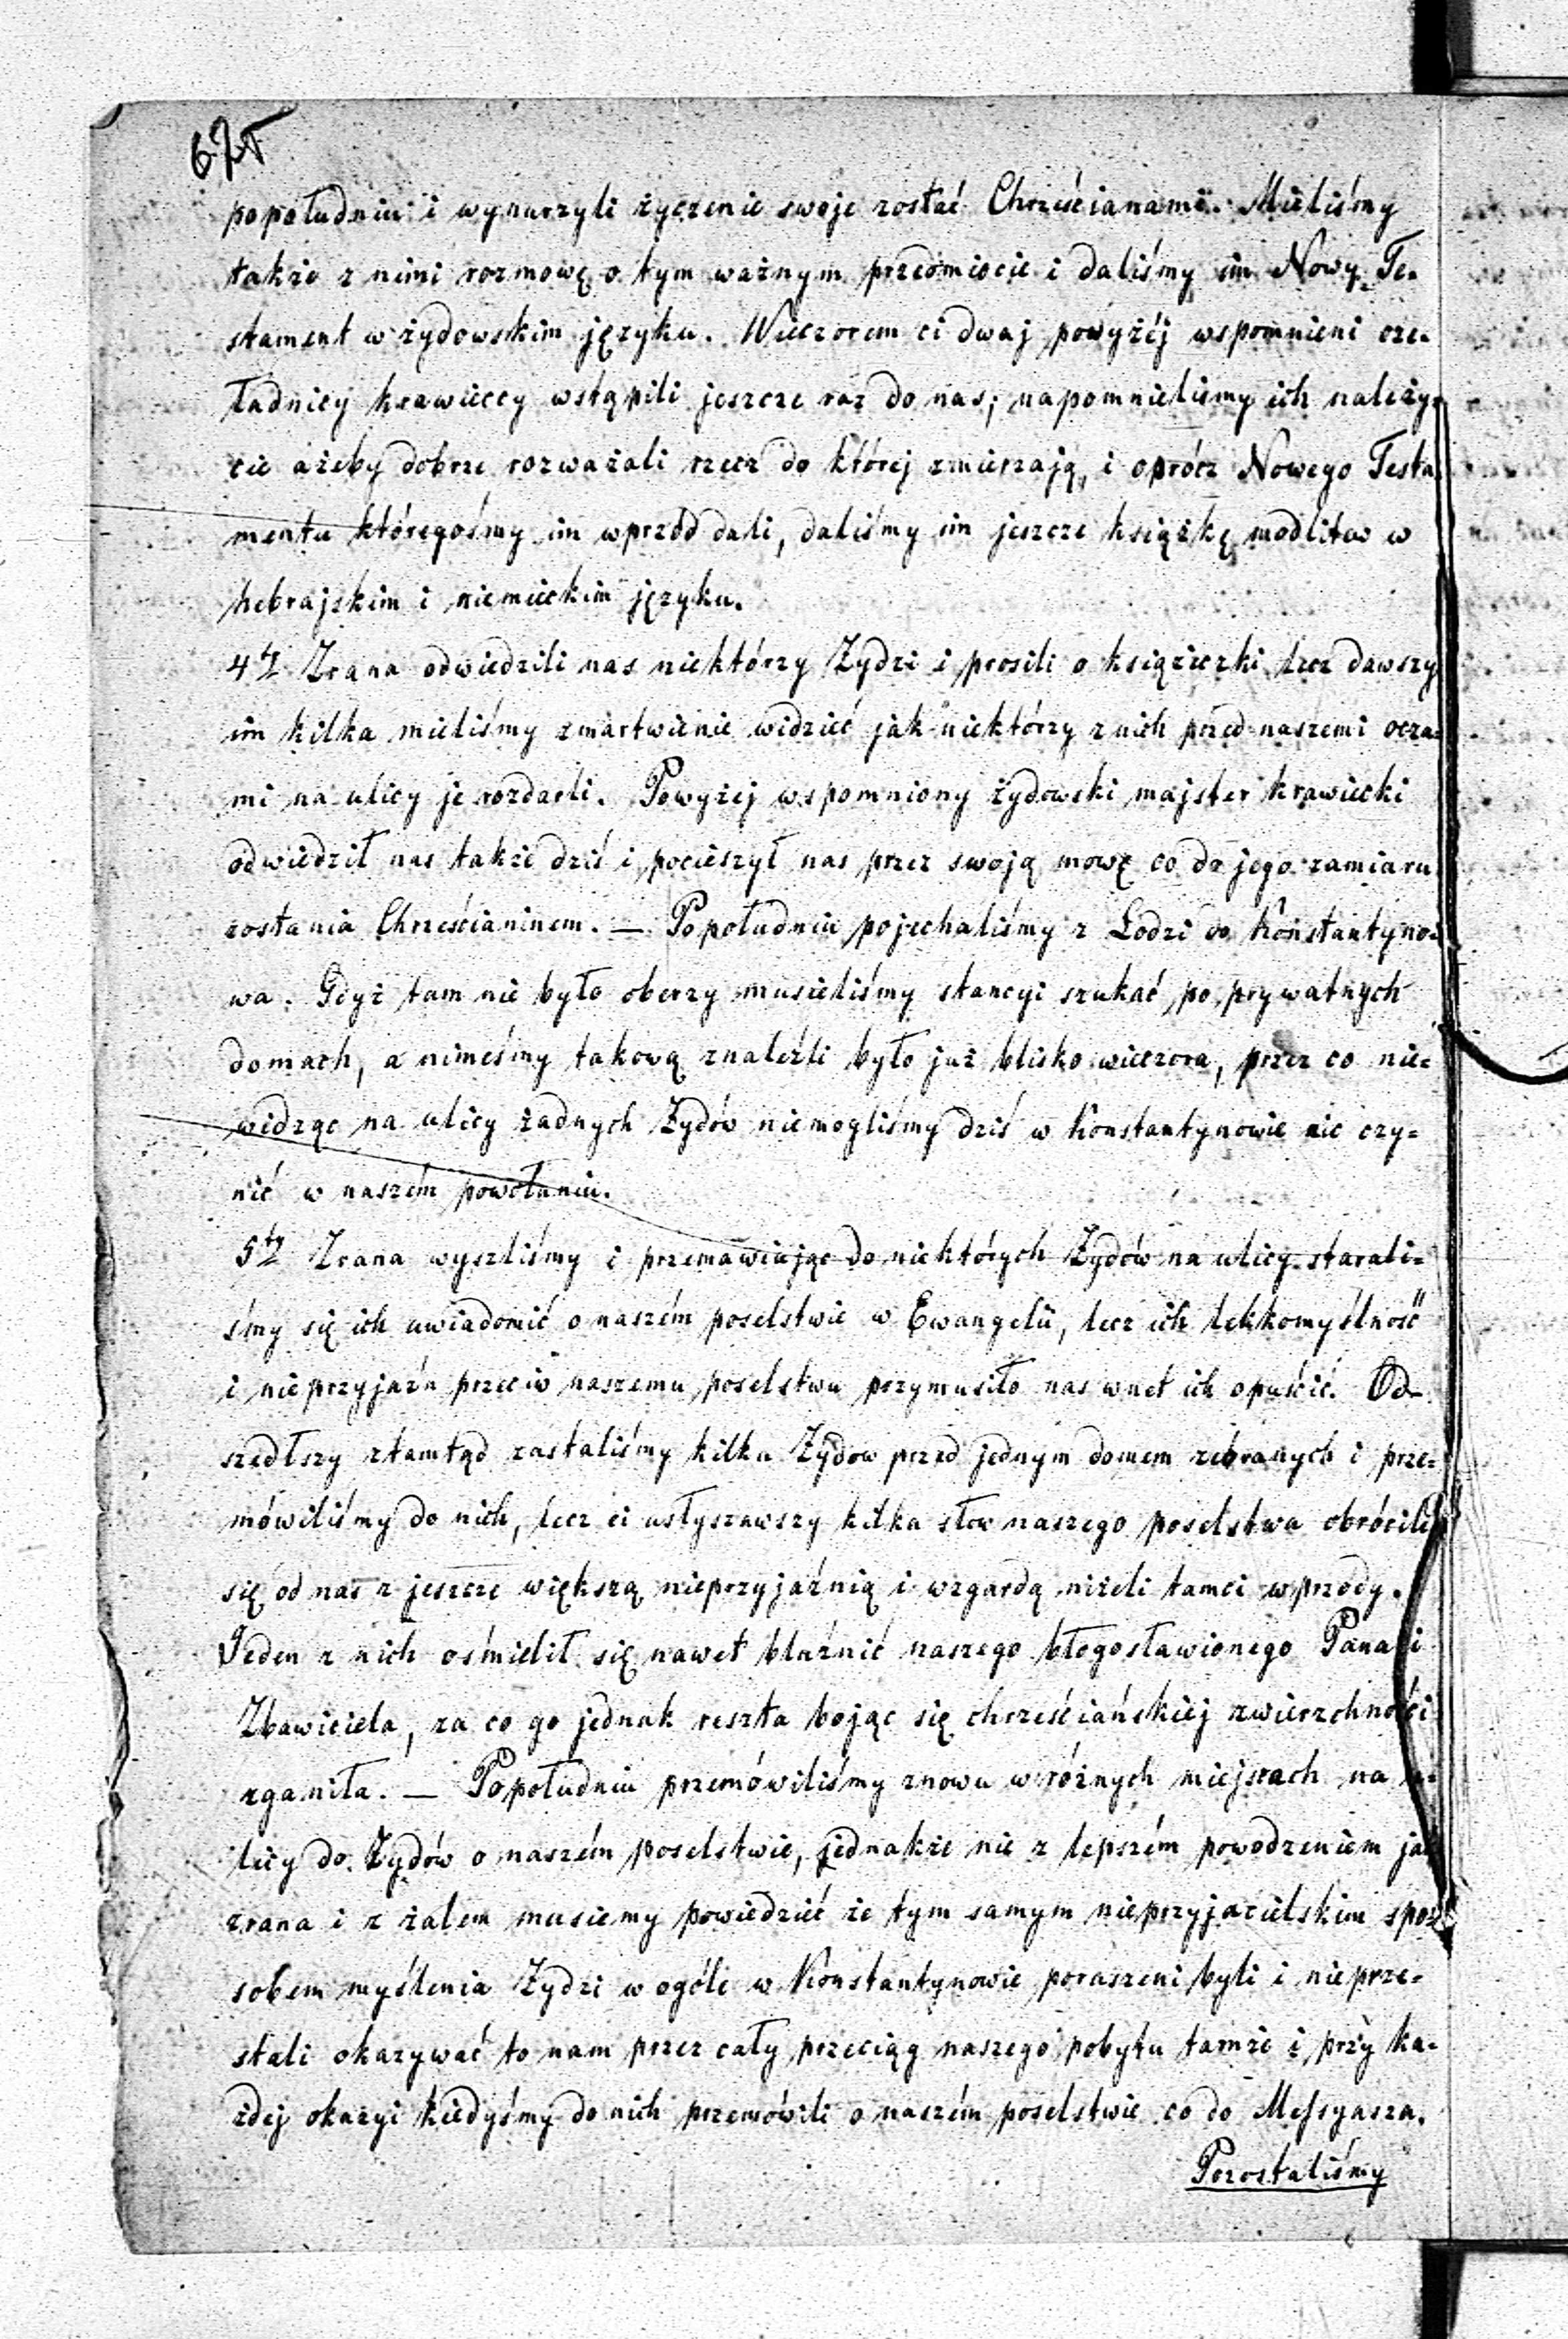 popołudniu i wynurzyli życzenie swoje zostać Chrześcianami. Mieliśmy
także z nimi rozmowę o tym ważnym przedmiocie i daliśmy im Nowy Te-
stament w żydowskim języku. Wieczorem ci dwaj powyżéj wspomnieni cze-
ladnicy krawieccy wstąpili jeszcze raz do nas; napomnieliśmy ich należy-
cie ażeby dobrze rozważali rzecz do której zmierzają, i oprócz Nowego Testa
mentu któregośmy im wprzód dali, daliśmy im jeszcze książkę modlitew w
hebrajskim i niemieckim języku.
4ty Zrana odwiedzili nas niektórzy Żydzi i prosili o książeczki lecz dawszy
im kilka mieliśmy zmartwienie widzieć jak niektórzy z nich przed naszemi ocza-
mi na ulicy je rozdarli. Powyżej wspomniony żydowski majster krawiecki
odwiedził nas także dziś i pocieszył nas przez swoją mowę co do jego zamiaru
zostania Chrześcianinem. — Popołudniu pojechaliśmy z Łodzi do Konstantyno-
wa. Gdyż tam nie było oberzy musieliśmy stancyi szukać po prywatnych
domach, a nimeśmy takową znaleźli było już blisko wieczora, przez co nie-
widząc na ulicy żadnych Żydów niemogliśmy dziś w Konstantynowie nic czy-
nić w naszém powołaniu.
5ty Zrana wyszliśmy i przemawiając do niektórych Żydów na ulicy starali-
śmy się ich uwiadomić o naszém poselstwie w Ewangelii, lecz ich lekkomyślność
i nieprzyjaźń przeciw naszemu poselstwu przymusiło nas wnet ich opuścić. Od-
szedłszy ztamtąd zastaliśmy kilku Żydow przed jednym domem zebranych i prze-
mówiliśmy do nich, lecz ci usłyszawszy kilka słow naszego poselstwa obrócili
się od nas z jeszcze większą nieprzyjaźnią i wzgardą niżeli tamci wprzódy.
Jeden z nich ośmielił się nawet bluźnić naszego błogosławionego Pana i
Zbawiciela, za co go jednak reszta bojąc się chrześciańskiéj zwierzchności
zganiła. — Popołudniu przemówiliśmy znowu w różnych miejscach na u-
licy do Żydów o naszém poselstwie, jednakże nie z lepszém powodzeniem jak
zrana i z żalem musiemy powiedzieć że tym samym nieprzyjacielskim spo-
sobem myślenia Żydzi w ogóle w Konstantynowie poruszeni byli i nieprze-
stali okazywać to nam przez cały przeciąg naszego pobytu tamże i przy ka-
żdej okazyi kiedyśmy do nich przemówili o naszém poselstwie co do Messyasza.
Pozostaliśmy